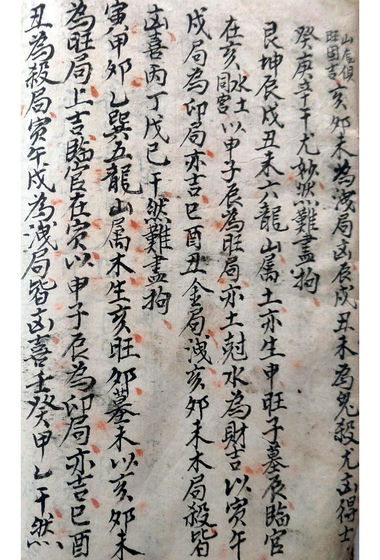 旺固吉亥卯未為洩局凶辰戌丑未為鬼殺尤凶得壬
癸庚辛干尤妙然難盡拘
艮坤辰戌丑未六龍山属土亦生申旺子墓辰臨官
在亥水土同宮以申子辰為旺局亦土尅水為財吉以寅午
戌局為印局亦吉巳酉丑金局洩亥卯未木局殺皆
凶喜丙丁戊己干然難盡拘
寅甲卯乙巽五龍山属木生亥旺卯墓未以亥卯未
為旺局上吉臨官在寅以申子辰為印局亦吉巳酉
丑為殺局寅午戌為洩局皆凶喜壬癸甲乙干然